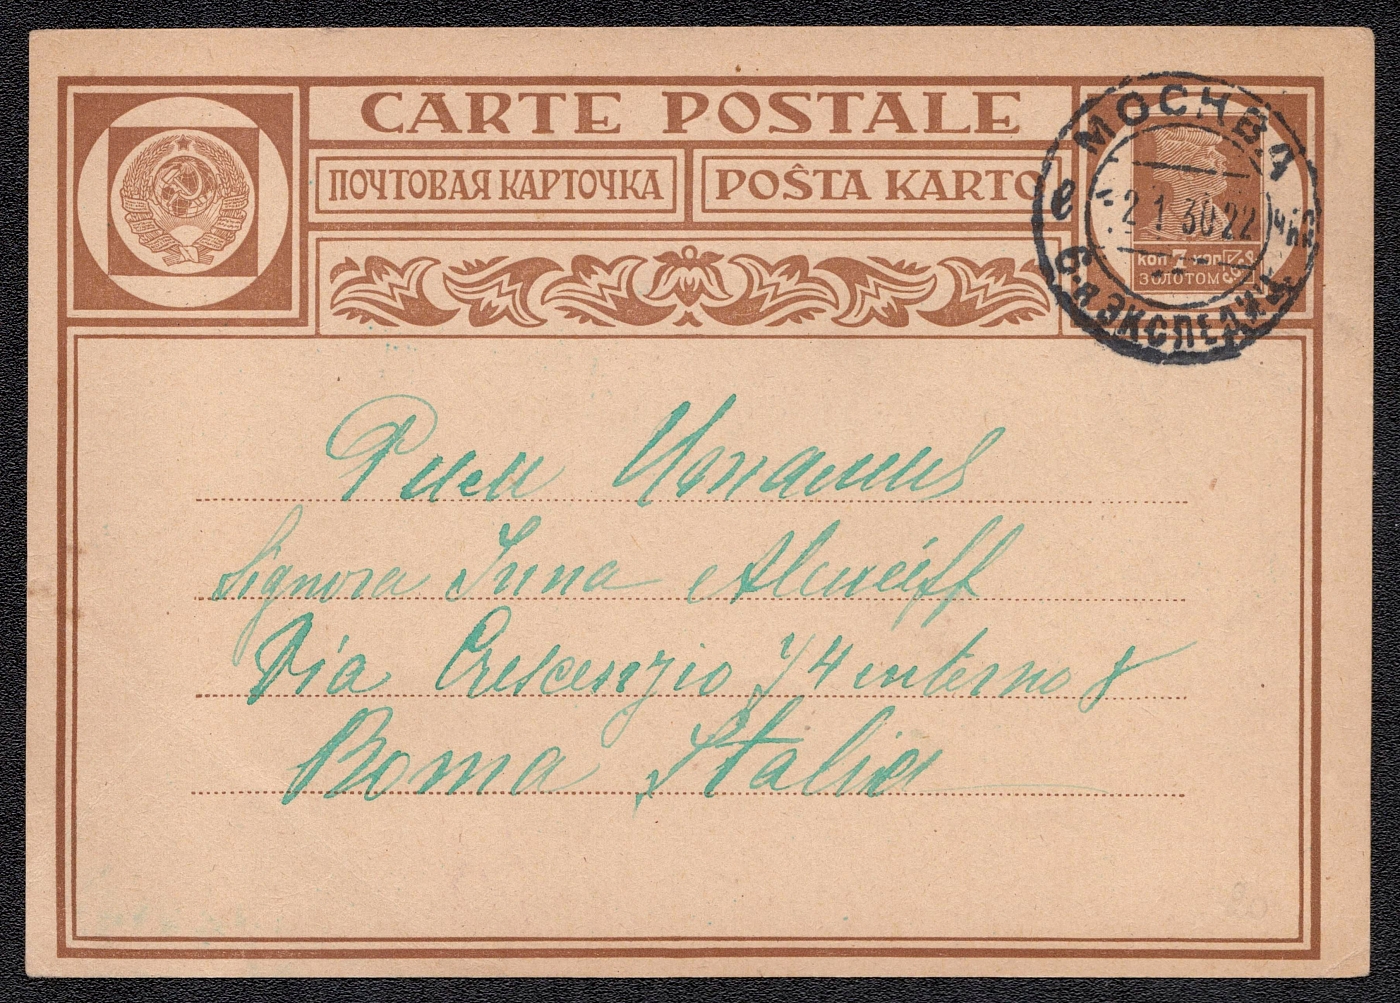 CARTE POSTALE
ПОЧТОВАЯ КАРТОЧКА
POŜTA KARTO
МОСКВА
2 1 30 22
6
ЭКСПЕДИЦ
КОП 7 КОП
ЗОЛОТОМ
Рим Италия
Signora Inna Alexéiff
Via Crescenzio 74 interno 8
Roma Italia